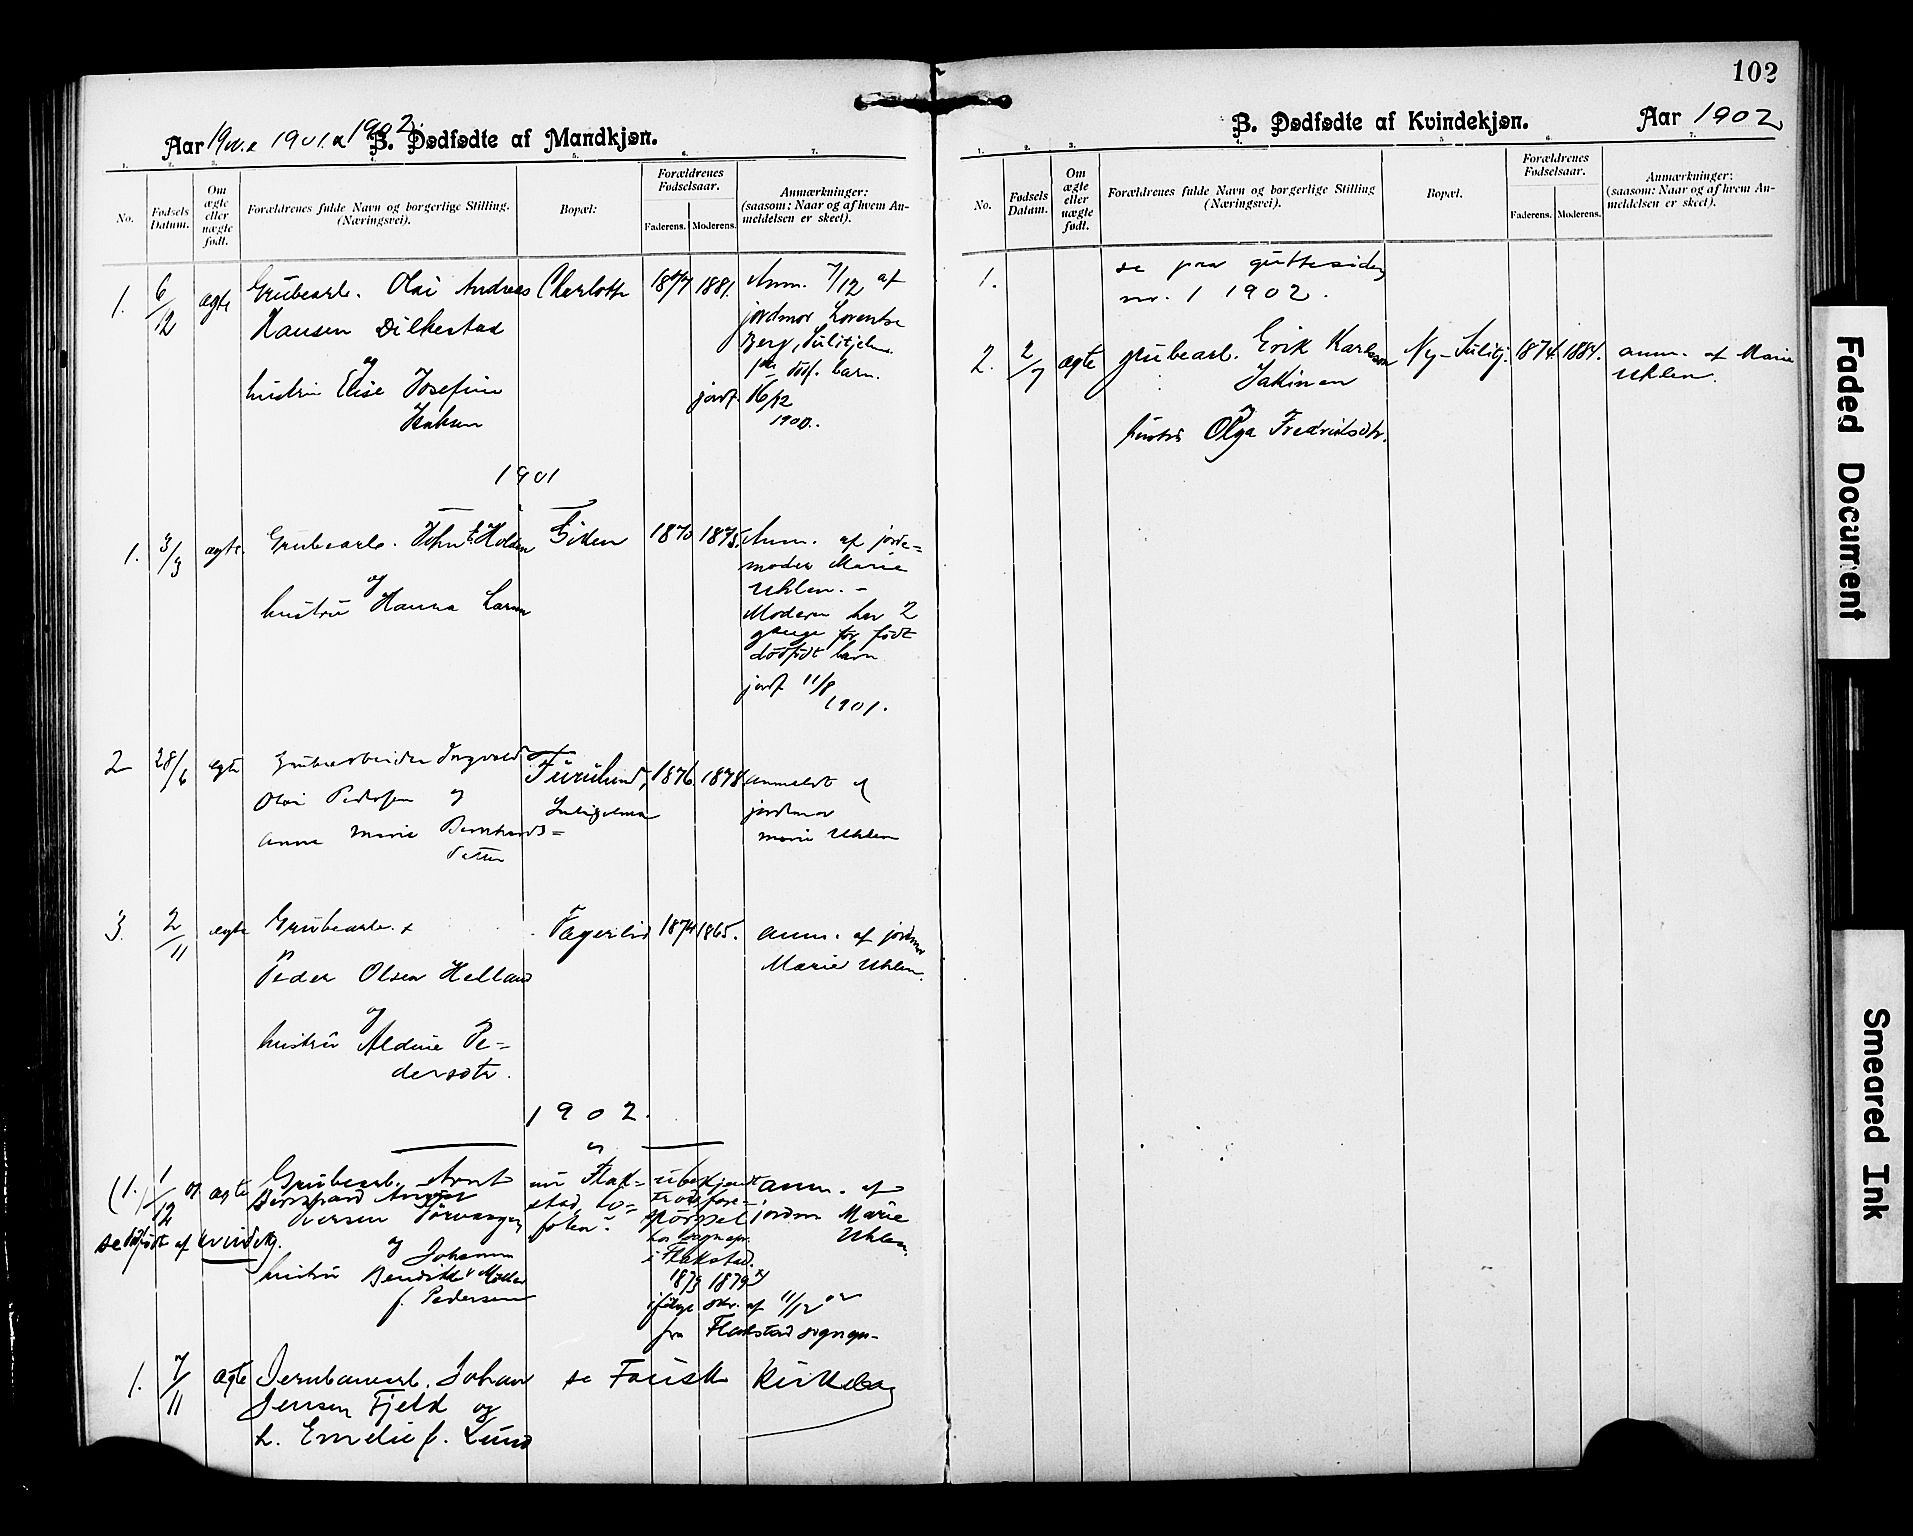 102
Aar 1900 1901 1902. B. Dødfødte af Mandkjøn.
1. 2. 3. 4. 5. 6. 7.
No.
Fødsels Datum.
Om ægte eller uægte født.
Forældrenes fulde Navn og borgerlige Stilling. (Næringsvei).
Bopæl:
Forældrenes Fødselsaar.
Faderens. Moderens.
Anmærkninger: (saasom: Naar og af hvem Anmeldelsen er skeet).
1. 6/12 ægte Grubearb. Olai Andreas Charlotte 1877 1881. Anm. 7/12 af
Hansen jordmor Lorentse
og Berg, Sulitjelm.
hustru Elise Josefine 1ste dødf. barn.
jordf. 16/12
1900.
1901
1. 3/3 ægte. Grubearb. John E. Holden Giken 1870 1875. Anm. af jorde=
moder Marie
og Uhlen. –
hustru Hanna Larsen Moderen har 2
gange før født
dødfødt barn
jordf. 11/8
1901.
2 28/6 ægte Grubearbeider Ingvald Furulund, 1876. 1878. anmeldt af
Olai Pedersen og Sulitjelma jordmor
Anna Marie Bernhards= marie Uhlen
datter
3. 2/11 ægte Grubearb. Fagerlid 1874 1865. anm. af jordmor
Peder Olsen Helland Marie Uhlen.
og
hustru Aldine Pe=
dersdtr.
1902.
(1.) 1/12 ægte Grubearb. Arnt Flak= ubekjendt anm. af
Bernhard August stad, Lo= trods fore= jordm Marie
Iversen foten. spørgsel Uhlen.
dødfødt af kvindekj. hos sognepr.
og Johanna i Flakstad.
hustru Bendikte Møller 1873 1879
f. Pedersen ifølge skr. af 11/12 02
fra Flakstad sognepr.
1. 7/11 ægte Jernbanearb. Johan se Fauske kirkebog
Jensen Fjeld og
h. Emelie f. Lund
B. Dødfødte af Kvindekjøn. Aar 1902
1. 2. 3. 4. 5. 6. 7.
No.
Fødsels Datum.
Om ægte eller uægte født.
Forældrenes fulde Navn og borgerlige Stilling (Næringsvei).
Bopæl.
Forældrenes Fødselsaar.
Faderens. Moderens.
Anmærkninger: (saasom: Naar og af hvem Anmeldelsen er skeet).
1. se paa guttesiden
nr. 1 1902.
2. 2/7 ægte grubearb. Erik Karlsson Ny-Sulitj. 1874. 1884. anm. af Marie
Uhlen.
og
hustru Olga Fredriksdtr.
Faded Document
Smeared Ink